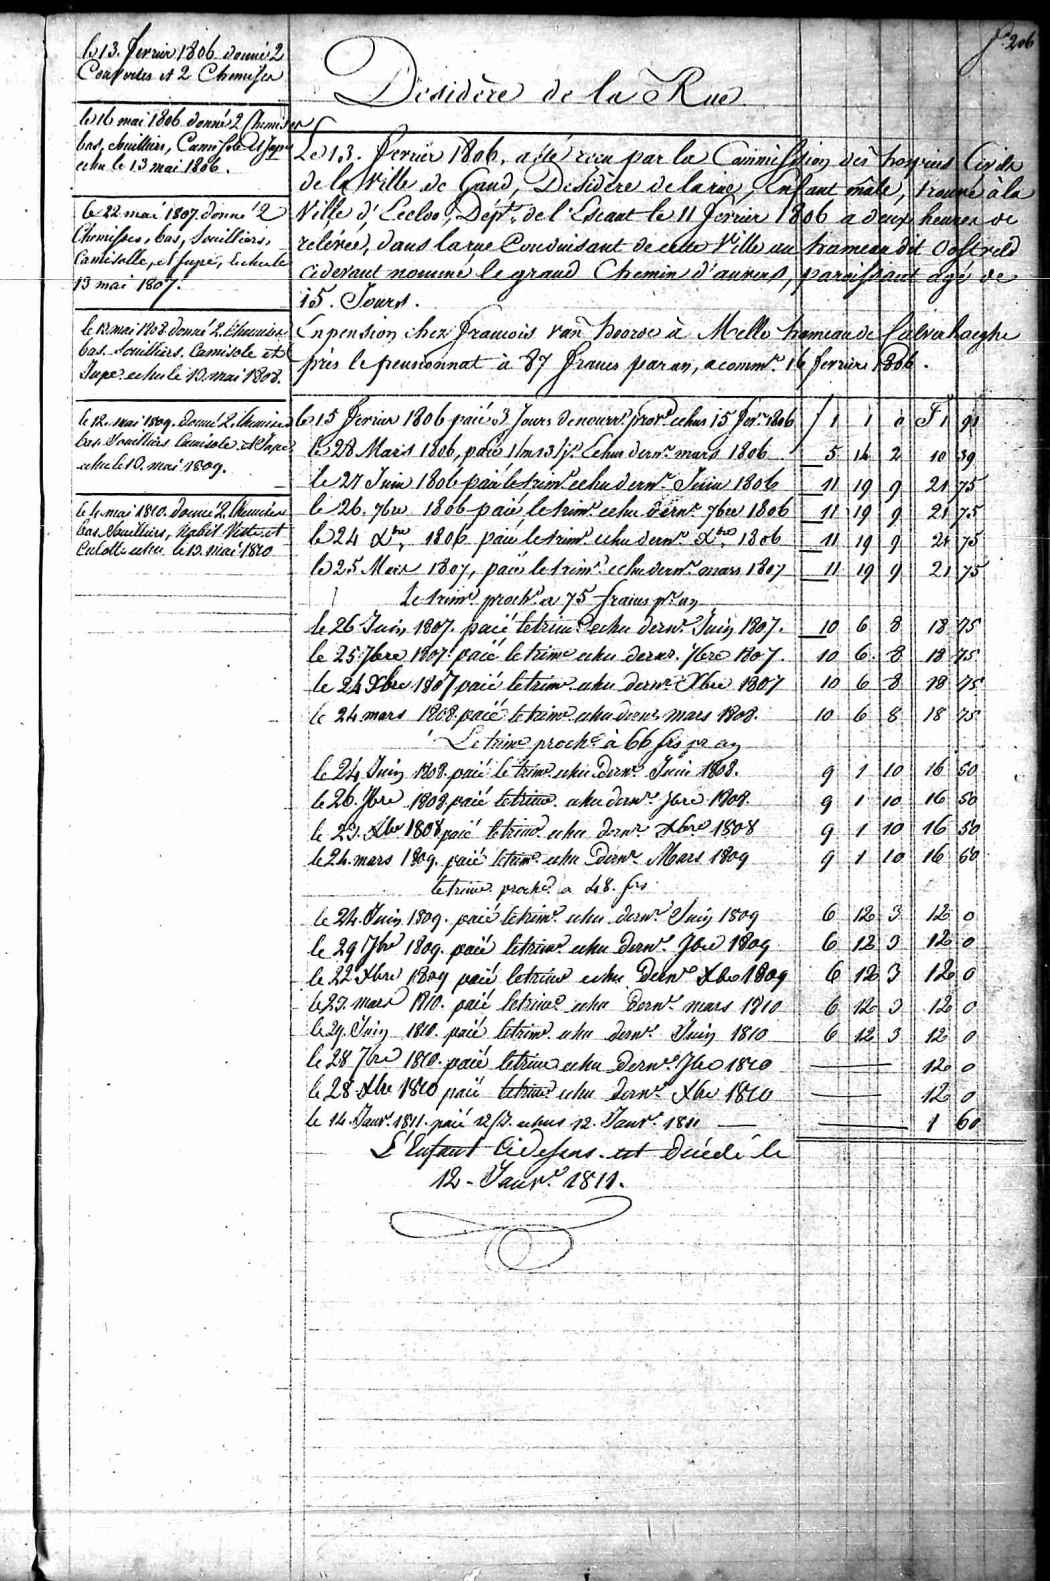 f° 206
le 13. fevrier 1806 donné 2
Couvertes et 2 Chemises
le 16 mai 1806 donné 2 Chemises
bas, souilliers, Camisole et Jupe
echu le 13 mai 1806.
le 22 mai 1807. donné 2
Chemisses, bas, souilliers,
Camiselle, et jupe, echu le
13 mai 1807.
le 12 mai 1808 donné 2. Chemises
bas. Souilliers. Camisole et
Jupe echu le 13 mai 1808.
le 12. mai 1809. donné 2. Chemises
bas souilliers Camisole et Jupe
echu le 13. mai 1809.
le 4. mai 1810. donné 2. Chemises
bas souilliers, habit Veste et
Culotte echu le 13. mai 1810
Désidère de la Rue
Le 13. fevrier 1806, a été reçu par la Commission des hospices Civils
de la Ville de Gand, Desidère delarue, Enfant mâle, trouvé à la
Ville d'Eecloo, Dépt. de l'Escaut le 11 fevrier 1806 a deux heures de
relevée, dans la rue Conduisant de cette Ville au hameau dit Oostveld
cidevant nommé le grand Chemin d'anvers, paroissant agé de
15. Jours.
En pension chez francois van hoorde à Melle hameau de Calverhaeghe
près le pensionnat à 87 francs par an, a comm. 16 fevrier 1806.
le 15 fevrier 1806 paié 3 Jours de nourr. prov. echus 15 fev. 1806 f 1 1 0 F 1 91
le 28 Mars 1806, paié 1 ms 13 j. Echus dern. mars 1806 5 14 2 10 39
le 27 Juin 1806 paié le trim. echu dern. Juin 1806 11 19 9 21 75
le 26. 7bre 1806 paié, le trim. echu dern. 7bre 1806 11 19 9 21 75
le 24 Xbre. 1806. paié le trim. echu dern. Xbre 1806 11 19 9 21 75
le 25 Mars 1807, paié le trim. echu dern. mars 1807 11 19 9 21 75
Le trim. proch. a 75 francs pr. an
le 26 Juin 1807. paié le trim. echu dern. Juin 1807. 10 6 8 18 75
le 25 7bre 1807. paié le trime echu dernr. 7bre 1807. 10 6 8 18 75
le 24 Xbre 1807 paié le trim. echu dernr. Xbre 1807 10 6 8 18 75
le 24 mars 1808. paié le trime echu dernr mars 1808. 10 6 8 18 75
Le trime proche. à 66 frs pr an
le 24. Juin 1808. paié le trim. echu dernr. Juin 1808. 9 1 10 16 50
le 26. 7bre 1808. paié le trime. echu dernr. 7bre 1808. 9 1 10 16 50
le 23. Xbre 1808 paié le trime echu dernr Xbre 1808 9 1 10 16 50
le 24. mars 1809. paié le trim. echu dernr. Mars 1809 9 1 10 16 50
le trime. proche. a 48. frs.
le 24. Juin 1809. paié le trim. echu dernr. Juin 1809 6 12 3 12 0
le 29 7bre 1809. paié le trim. echu dernr. 7bre 1809 6 12 3 12 0
le 22 Xbre 1809 paié le trime echu Dernr Xbre 1809 6 12 3 12 0
le 23. mars 1810. paié le trime. echu dernr. mars 1810 6 12 3 12 0
le 29. Juin 1810. paié le trim. echu dernr. Juin 1810 6 12 3 12 0
le 28 7bre 1810. paié le trime echu Dernr. 7bre 1810 12 0
le 28 Xbre 1810 paié le trime. echu dernr. Xbre 1810 12 0
le 14. Janvr. 1811. paié 12 J. echus 12. Janvr. 1811 1 60
L'Enfant Cidessus est décédé le
12 - Janvr. 1811.